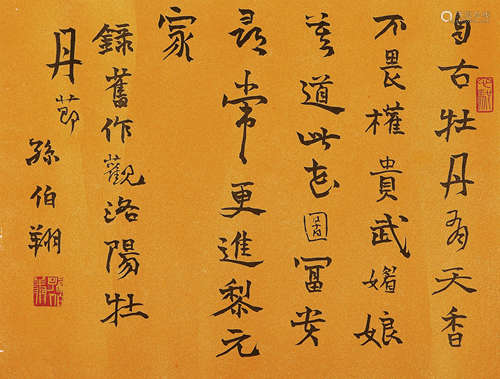 自古牡丹有天香
不畏權貴武媚娘
莫道此花圖冨安
尋常更進黎元
家
錄舊作觀洛陽牡
丹節
孫伯翔